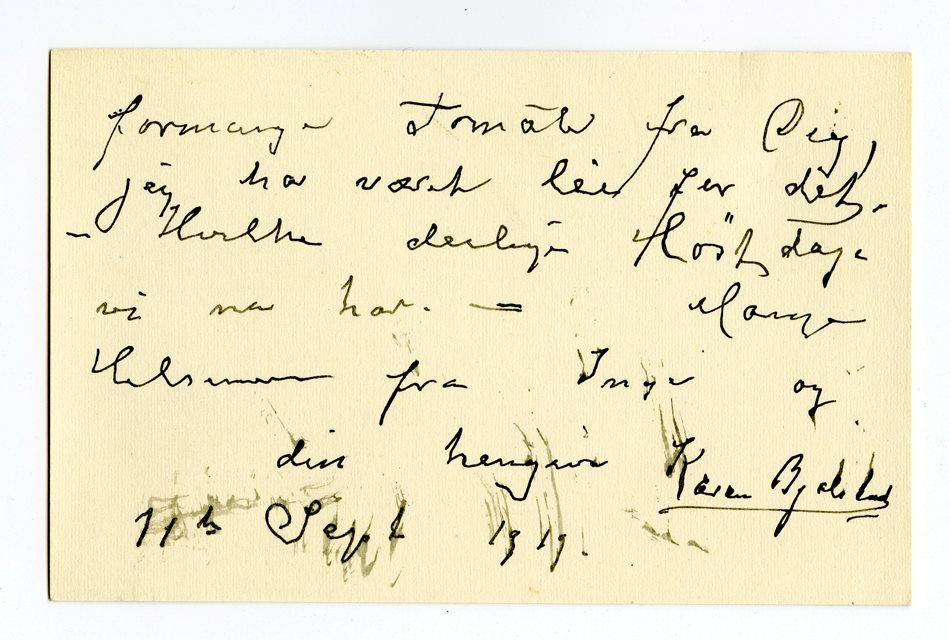 for mange Tomater fra Dig,
jeg har været lei for det,
– Hvilke deilige Höst dage
vi nu har. = Mange
Hilsener fra Inger og
din hengivne Karen Bjølstad
11te Sept 1919.